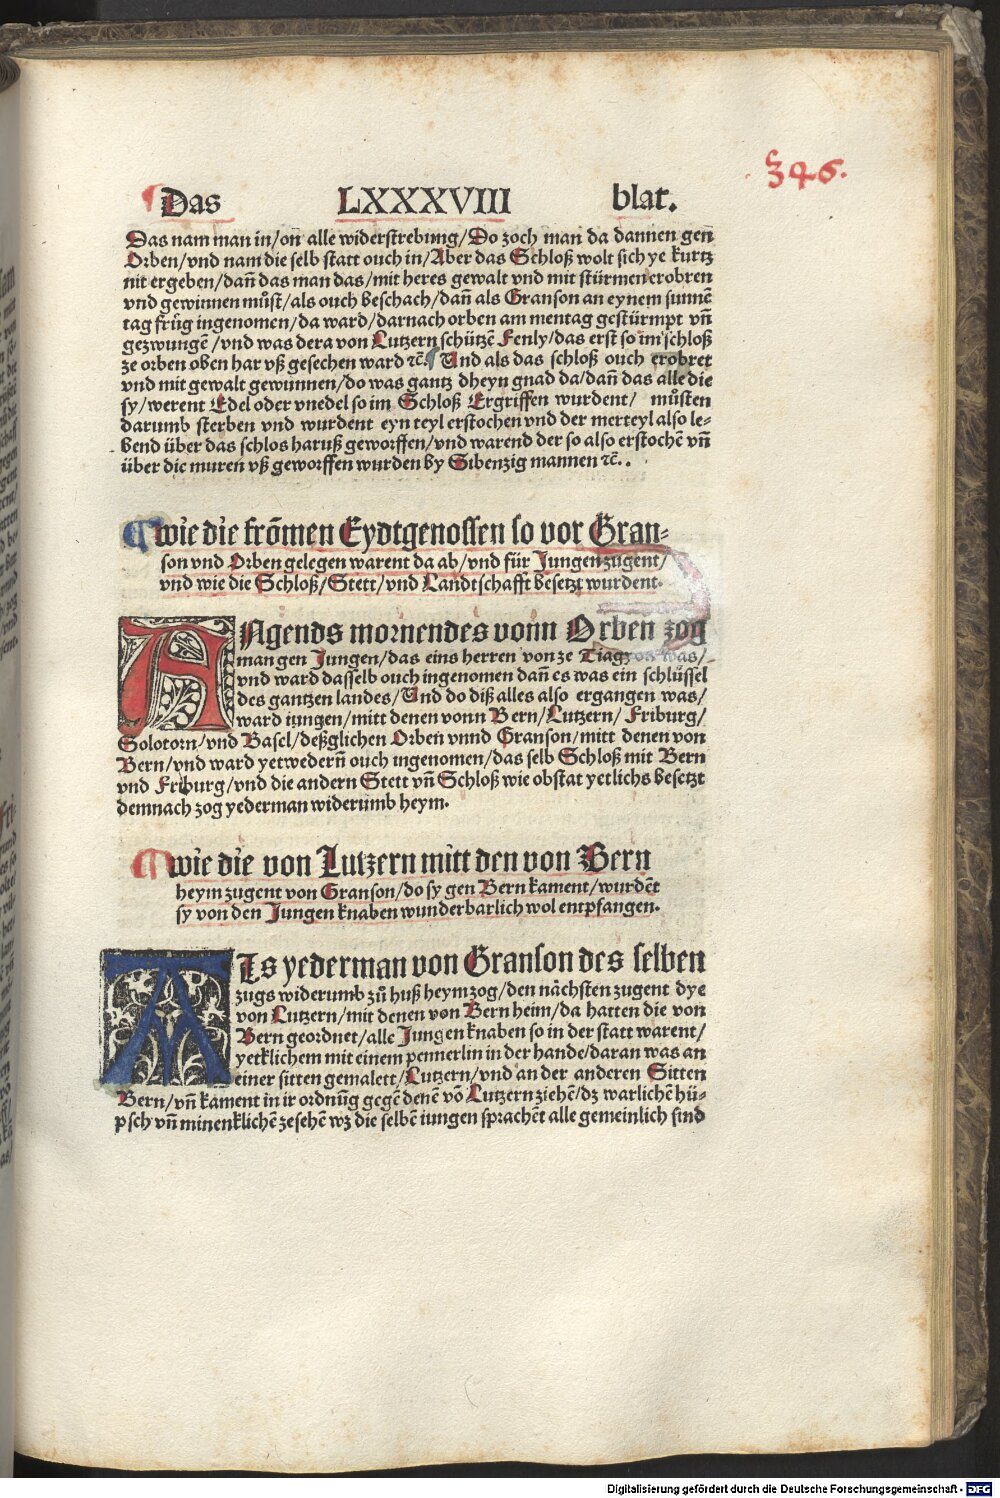 346.
Das LXXXVIII blat.
Das nam man in/on̄ alle widerstrebung/Do zoch man da dannen gen̄
Orben/vnd nam die selb statt ouch in/Aber das Schloß wolt sich ye kurtz
nit ergeben/dañ das man das/mit heres gewalt vnd mit stürmen erobren
vnd gewinnen můst/als ouch beschach/dañ als Granson an eynem sunnē
tag frůg ingenomen/da ward/darnach orben am mentag gestürmpt vñ
gezwungē/vnd was dera von Lutzern schützē Fenly/das erst so im schloß
ze orben oben har vß gesechen ward ꝛc̄. Und als das schloß ouch erobret
vnd mit gewalt gewunnen/do was gantz dheyn gnad da/dañ das alle die
sy/werent Edel oder vnedel so im Schloß Ergriffen wurdent/ můsten
darumb sterben vnd wurdent eyn teyl erstochen vnd der merteyl also le-
bend über das schlos haruß geworffen/vnd warend der so also erstochē vñ
über die muren vß geworffen wurden by Sibenzig mannen ꝛc̄..
¶ wie die frōmen Eydtgenossen so vor Gran-
son vnd Orben gelegen warent da ab/vnd für Jungen zugent/
vnd wie die Schloß/Stett/vnd Landtschafft besetzt wurdent.
ANgends mornendes vonn Orben zog
man gen Jungen/das eins herren von ze was/
vnd ward dasselb ouch ingenomen dañ es was ein schlüssel
des gantzen landes/Und do diß alles also ergangen was/
ward iungen/mitt denen vonn Bern/Lutzern/ Friburg/
Solotorn/vnd Basel/deßglichen Orben vnnd Granson/mitt denen von
Bern/vnd ward yetwedern̄ ouch ingenomen/das selb Schloß mit Bern
vnd Friburg/vnd die andern Stett vñ Schloß wie obstat yetlichs besetzt
demnach zog yederman widerumb heym.
¶ wie die von Lutzern mitt den von Bern
heym zugent von Granson/do sy gen Bern kament/wurdēt
sy von den Jungen knaben wunderbarlich wol entpfangen.
Als yederman von Granson des selben
zugs widerumb zů huß heym zog/den nächsten zugent dye
von Lutzern/mit denen von Bern heim/da hatten die von
Bern geordnet/alle Jungen knaben so in der statt warent/
yetklichem mit einem pennerlin in der hande/daran was an
einer sitten gemalett/Lutzern/vnd an der anderen Sitten
Bern/vñ kament in ir ordnūg gegē denē vō Lutzern ziehē/dz warlichē hü-
psch vñ minenklichē zesehē wz die selbē iungen sprachēt alle gemeinlich sind
Digitalisierung gefördert durch die Deutsche Forschungsgemeinschaft - DFG